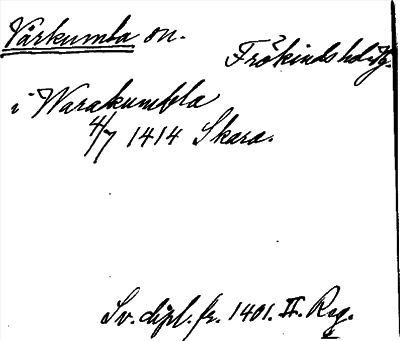 Vårkumla sn.
Frökinds hd. Vg.
i Warakumbla
4/7 1414 Skara.
Sv. dipl. fr. 1401. II. Reg.